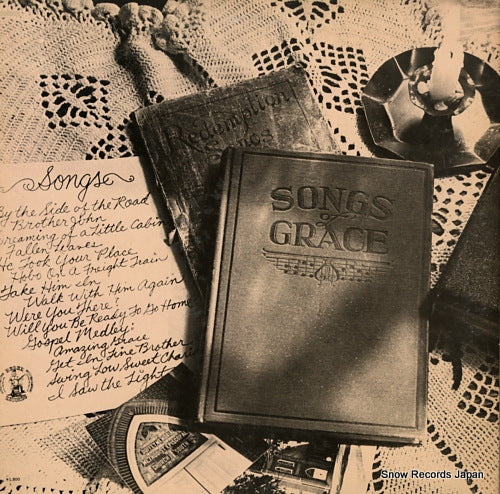 Redemption
Songs
SONGS
of
GRACE
Songs
By the Side of the Road
Brother John
Dreaming of a Little Cabin
Fallen Leaves
He Took Your Place
Hobo On A Freight Train
Take Him In
Walk With Him Again
Were You There?
Will you Be Ready To Go Home
Gospel Medley:
Amazing Grace
Get In Line Brother
Swing Low, Sweet Chariot
I Saw the Light
Snow Records Japan